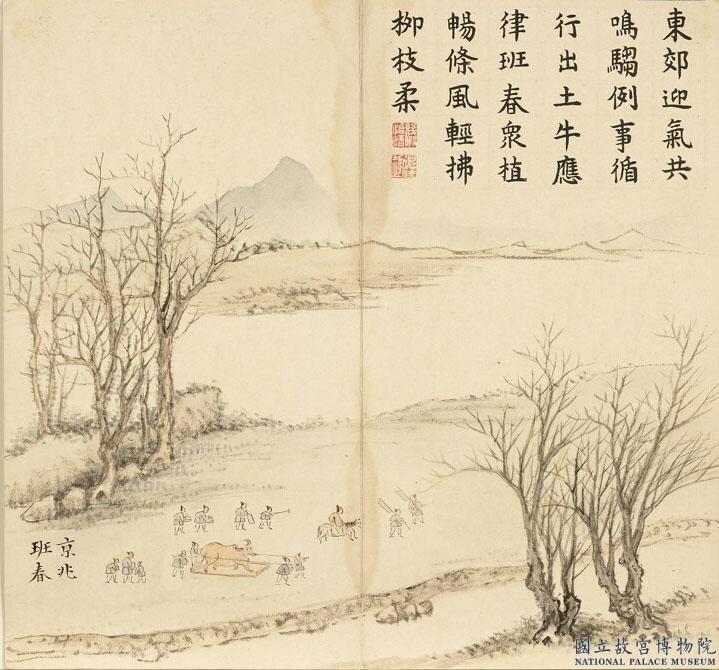 東郊迎氣共
鳴騶例事循
行出土牛應
律班春衆植
暢條風輕拂
栁枝柔
京兆
班春
國立故宮博物院
NATIONAL PALACE MUSEUM